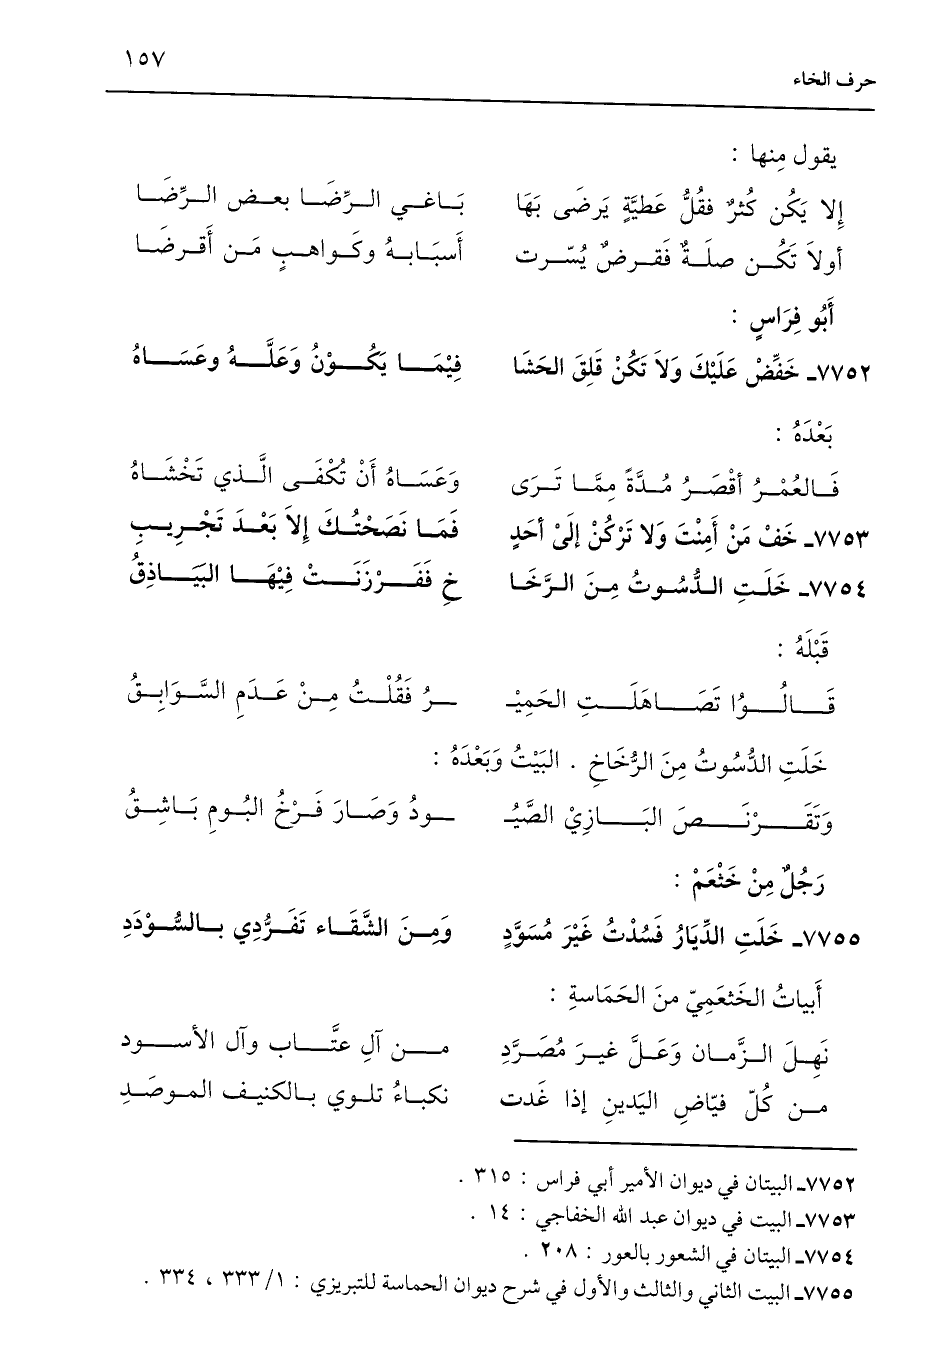 ١٥٧
حرف الخاء
يقول مِنها :
إلا يَكُن كُثرٌ فقُلُّ عَطيَّةٍ يَرضَى بهَا بَـاغـي الـرِّضَـا بعـض الـرِّضَـا
أولاَ تَكُـن صلَـةٌ فَقـرضٌ يُسّـرت أسبَـابـهُ وكَـواهـبٍ مَـن أقـرضَـا
أبُو فِرَاسٍ :
٧٧٥٢ـ خَفِّضْ عَلَيْكَ وَلاَ تَكُنْ قَلِقَ الحَشَا فِيْمَـا يَكُـوْنُ وَعَلَّـهُ وعَسَـاهُ
بَعْدَهُ :
فَـالعُمْـرُ أقْصَـرُ مُـدَّةً مِمَّـا تَـرَى وَعَسَـاهُ أنْ تُكْفَـى الَّـذي تَخْشَـاهُ
٧٧٥٣ـ خَفْ مَنْ أمِنْتَ وَلا تَرْكُنْ إلَىْ أحَدٍ فَمَـا نَصَحْتُـكَ إلاَ بَعْـدَ تَجْـرِيـبِ
٧٧٥٤ـ خَلَـتِ الـدُّسُـوتُ مِـنَ الـرَّخَـا خِ فَفَـرْزَنَـتْ فِيْهَـا البَيَـاذِقُ
قَبْلَهُ :
قَـالُـوُا تَصَـاهَلَـتِ الحَمِيْـ ـرُ فَقُلْـتُ مِـنْ عَـدَمِ السَّـوَابِـقُ
خَلَتِ الدُّسُوتُ مِنَ الرُّخَاخِ . البَيْتُ وَبَعْدَهُ :
وَتَقَـرْنَـصَ البَـازِيْ الصَّيُـ ـودُ وَصَـارَ فَـرْخُ البُـومِ بَـاشِـقُ
رَجُلٌ مِنْ خَثْعَمْ :
٧٧٥٥ـ خَلَتِ الدِّيَارُ فَسُدْتُ غَيْرَ مُسَوَّدٍ وَمِـنَ الشَّقَـاء تَفَـرُّدِي بـالسُّـوْدَدِ
أبياتُ الخَثعَميّ منَ الحَمَاسةِ :
نَهِـلَ الـزَّمـان وَعَـلَّ غيـرَ مُصَـرَّدِ مـن آلِ عتَّـاب وآل الأسـود
مـن كُـلّ فيّاضِ اليَدينِ إذا غَدت نكبـاءُ تلـوي بـالكنيـف المـوصَـدِ
٧٧٥٢ـ البيتان في ديوان الأمير أبي فراس : ٣١٥ .
٧٧٥٣ـ البيت في ديوان عبد الله الخفاجي : ١٤ .
٧٧٥٤ـ البيتان في الشعور بالعور : ٢٠٨ .
٧٧٥٥ـ البيت الثاني والثالث والأول في شرح ديوان الحماسة للتبريزي : ١/ ٣٣٣ ، ٣٣٤ .